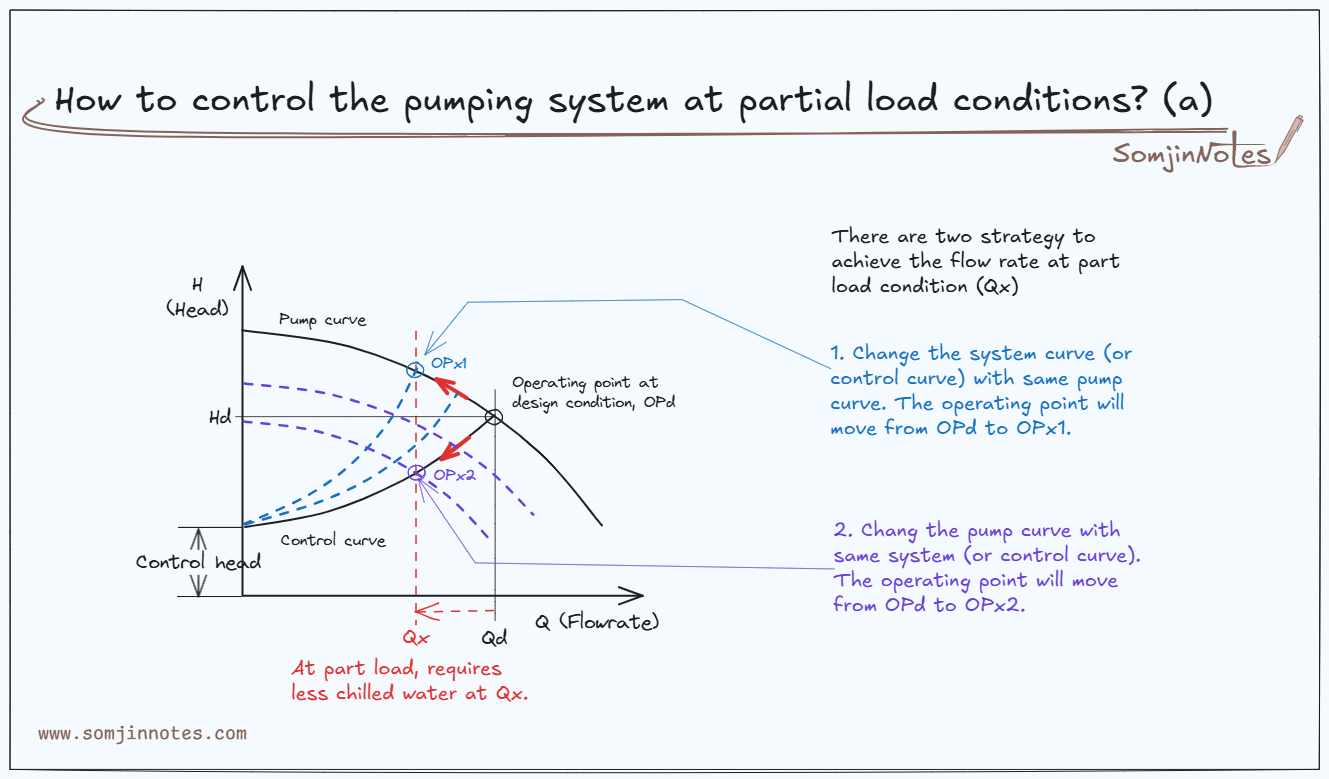 How to control the pumping system at partial load conditions? (a)
SomjinNotes
There are two strategy to
achieve the flow rate at part
load condition (Qx)
H
(Head)
Pump curve
OPx1
1. Change the system curve (or
control curve) with same pump
curve. The operating point will
move from OPd to OPx1.
Operating point at
design condition, OPd
Hd
OPx2
2. Chang the pump curve with
same system (or control curve).
The operating point will move
from OPd to OPx2.
Control curve
Control head
Q (Flowrate)
Qx
Qd
At part load, requires
less chilled water at Qx.
www.somjinnotes.com